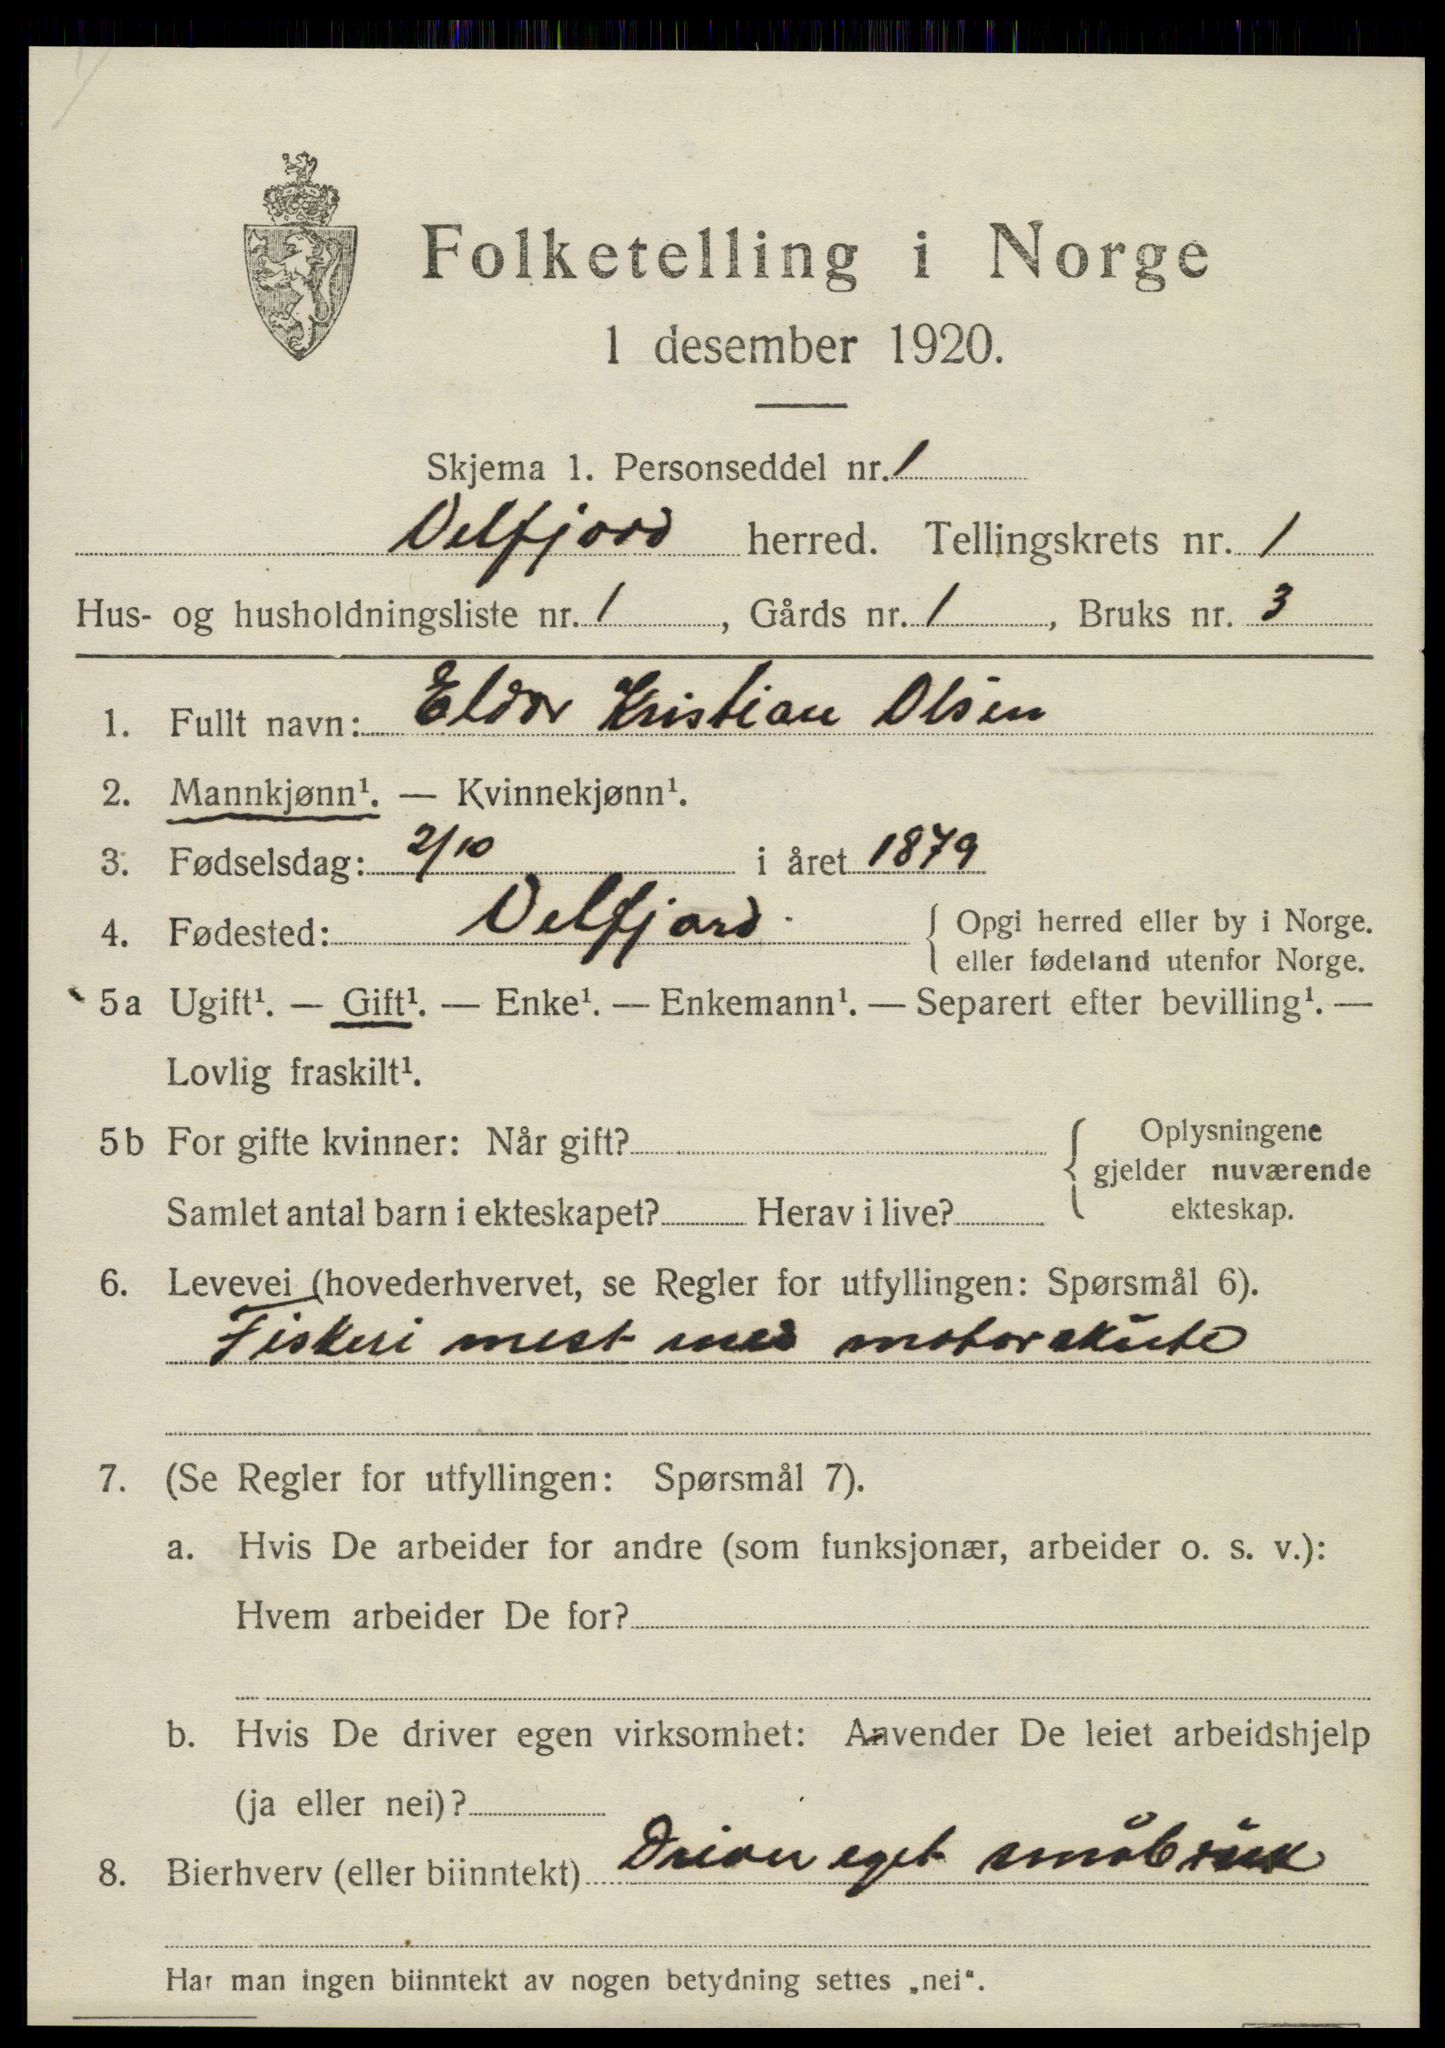 Folketelling i Norge
1 desember 1920.
Skjema 1. Personseddel nr. 1
Velfjord herred. Tellingskrets nr. 1
Hus- og husholdningsliste nr. 1, Gårds nr. 1, Bruks nr. 3
1. Fullt navn: Eldor Kristian Olsen
2. Mannkjønn¹. — Kvinnekjønn¹.
3. Fødselsdag: 2/10 i året 1879
4. Fødested: Velfjord { Opgi herred eller by i Norge.
eller fødeland utenfor Norge.
5a Ugift¹. — Gift¹. — Enke¹. — Enkemann¹. — Separert efter bevilling¹. —
Lovlig fraskilt¹.
5b For gifte kvinner: Når gift?
Samlet antal barn i ekteskapet? Herav i live?
{ Oplysningene
gjelder nuværende
ekteskap.
6. Levevei (hovederhvervet, se Regler for utfyllingen: Spørsmål 6).
Fiskeri mest med motorskute
7. (Se Regler for utfyllingen: Spørsmål 7).
a. Hvis De arbeider for andre (som funksjonær, arbeider o. s. v.):
Hvem arbeider De for?
b. Hvis De driver egen virksomhet: Anvender De leiet arbeidshjelp
(ja eller nei)?
8. Bierhverv (eller biinntekt) Driver eget småbruk
Har man ingen biinntekt av nogen betydning settes „nei“.